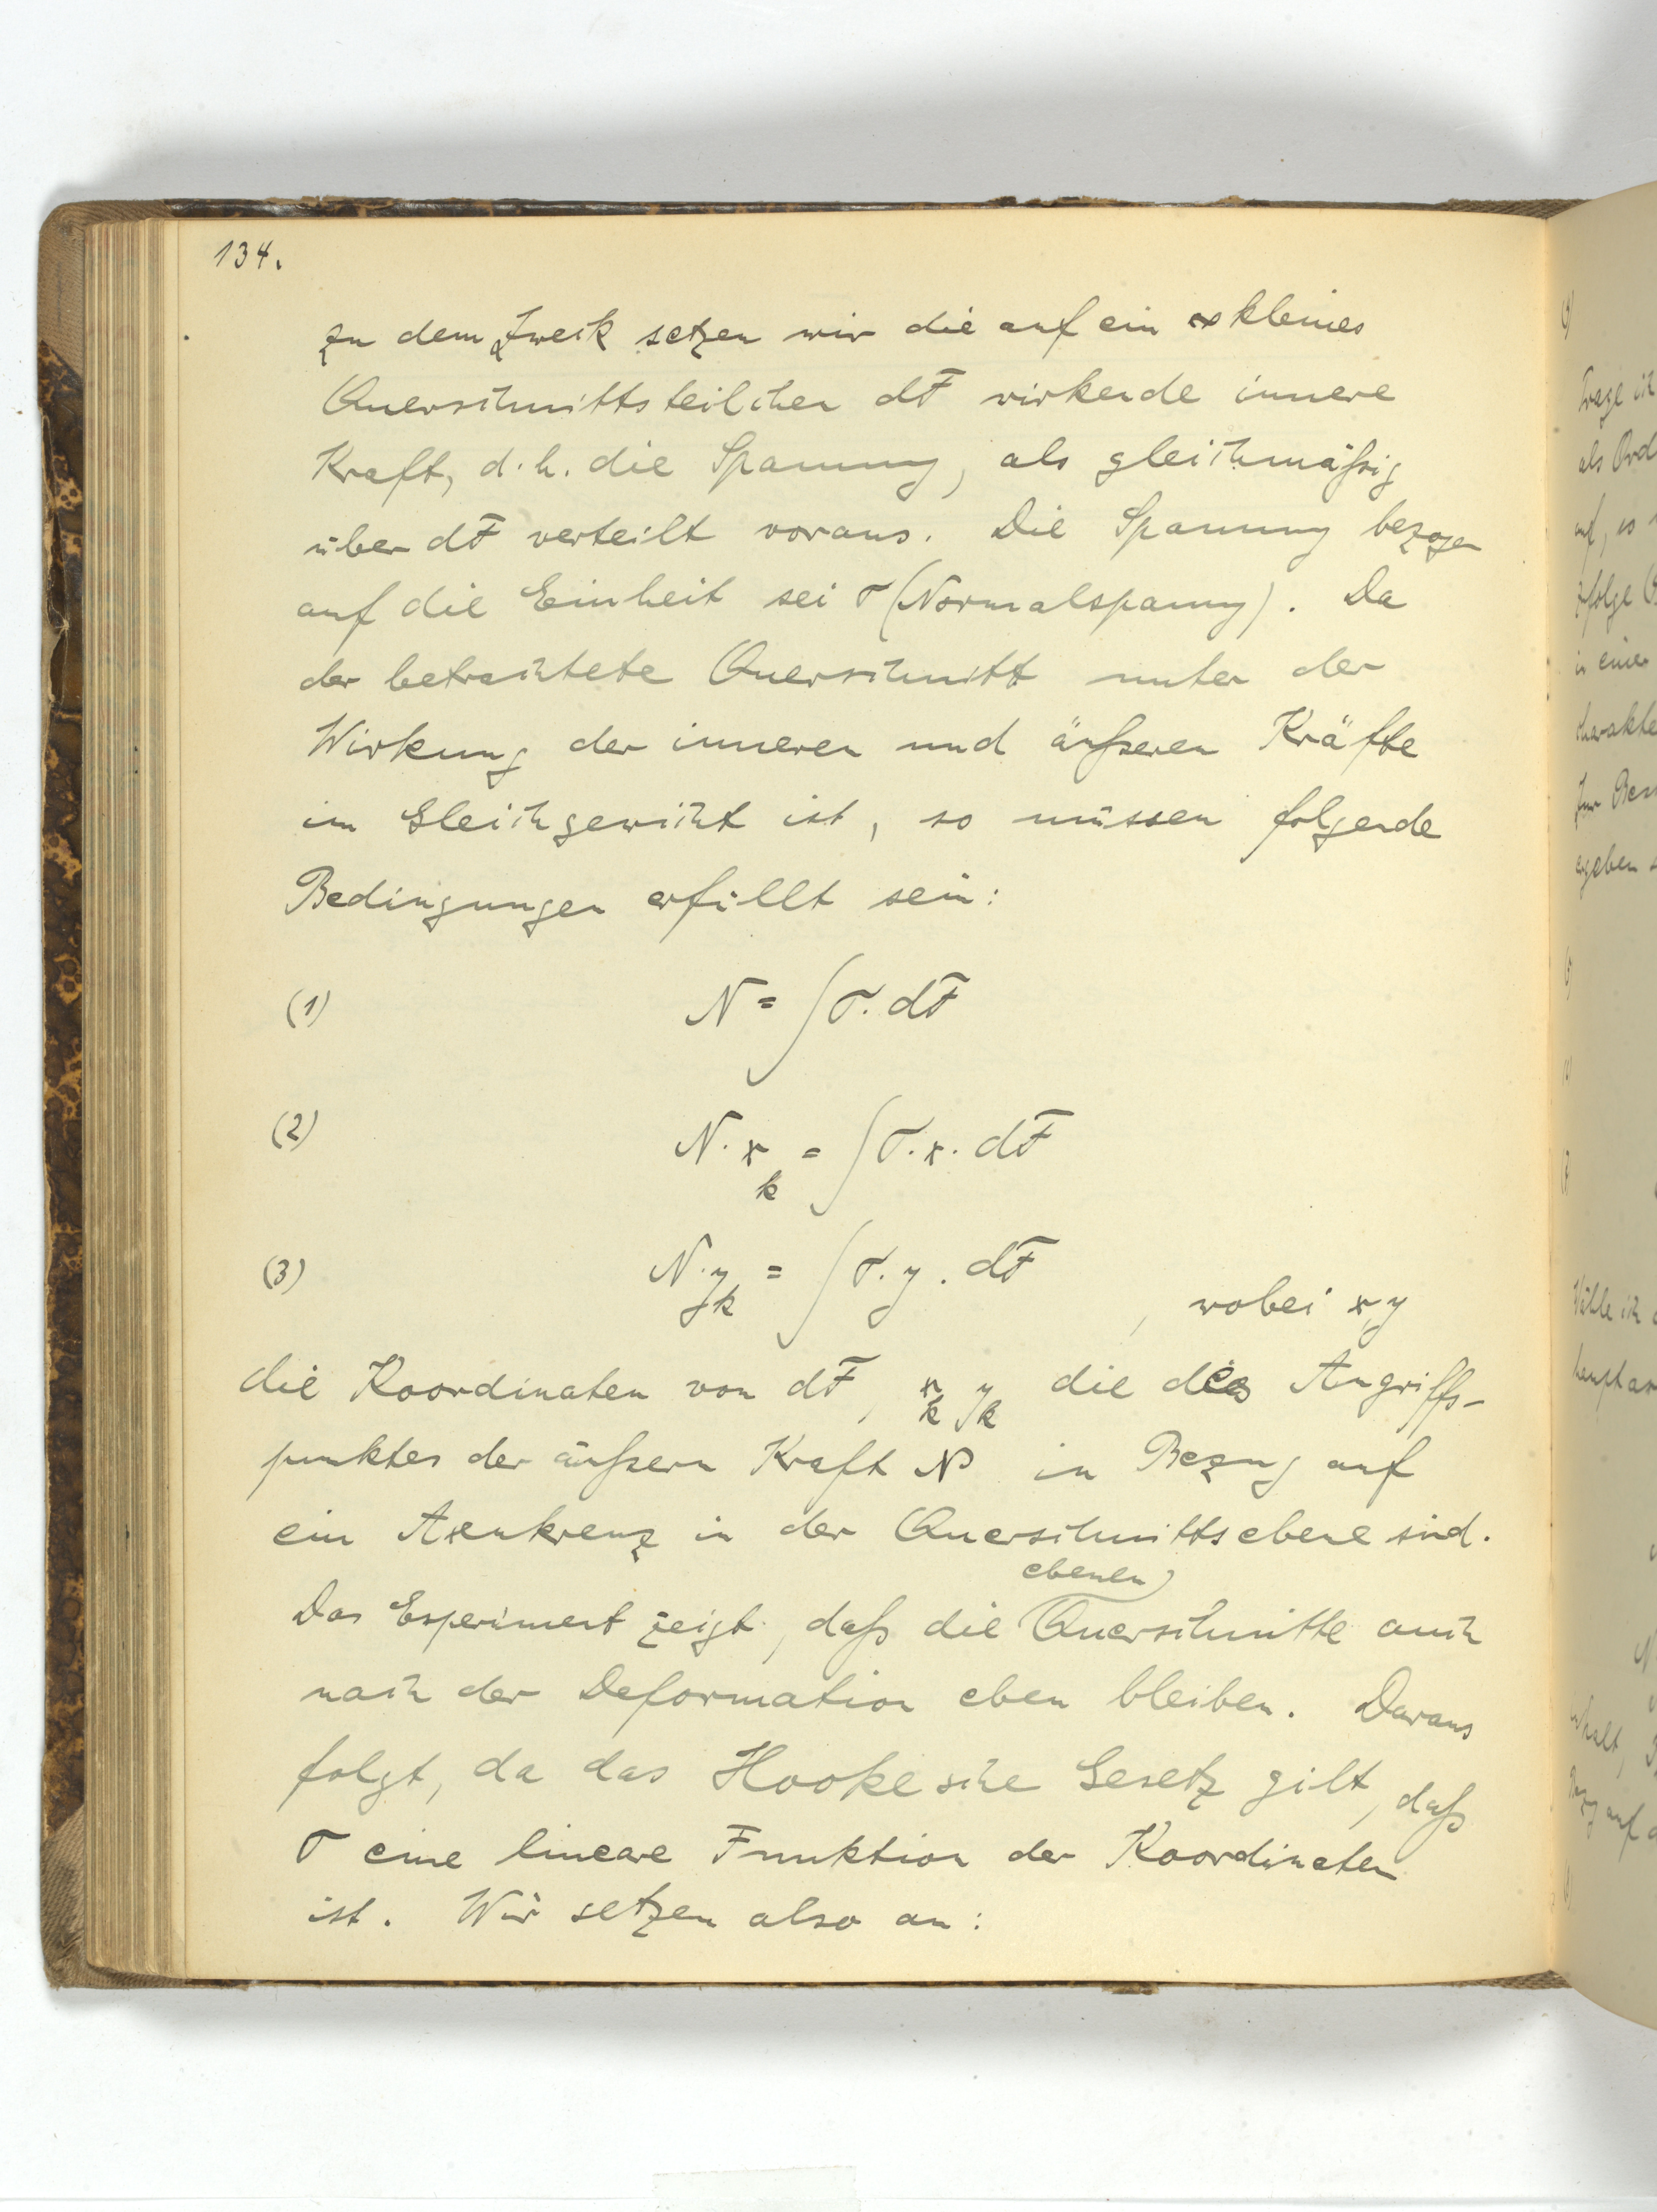 134.
zu dem Zweck setzen wir die auf ein ∞ kleines
Querschnittsteilchen dF wirkende innere
Kraft, d.h. die Spannung, als gleichmäßig
über dF verteilt voraus. Die Spannung bezogen
auf die Einheit sei σ (Normalspanng). Da
der betrachtete Querschnitt unter der
Wirkung der inneren und äußeren Kräfte
im Gleichgewicht ist, so müssen folgende
Bedingungen erfüllt sein:
(1) N = ∫σ. dF
(2) N. x_k = ∫σ. x. dF
(3) N. y_k = ∫σ. y. dF
, wobei x,y
die Koordinaten von dF, x_k y_k die des Angriffs-
punktes der äußern Kraft N in Bezug auf
ein Axenkreuz in der Querschnittsebene sind.
ebenen
Das Experiment zeigt, daß die Querschnitte auch
nach der Deformation eben bleiben. Daraus
folgt, da das Hookesche Gesetz gilt, daß
σ eine lineare Funktion der Koordinaten
ist. Wir setzen also an: